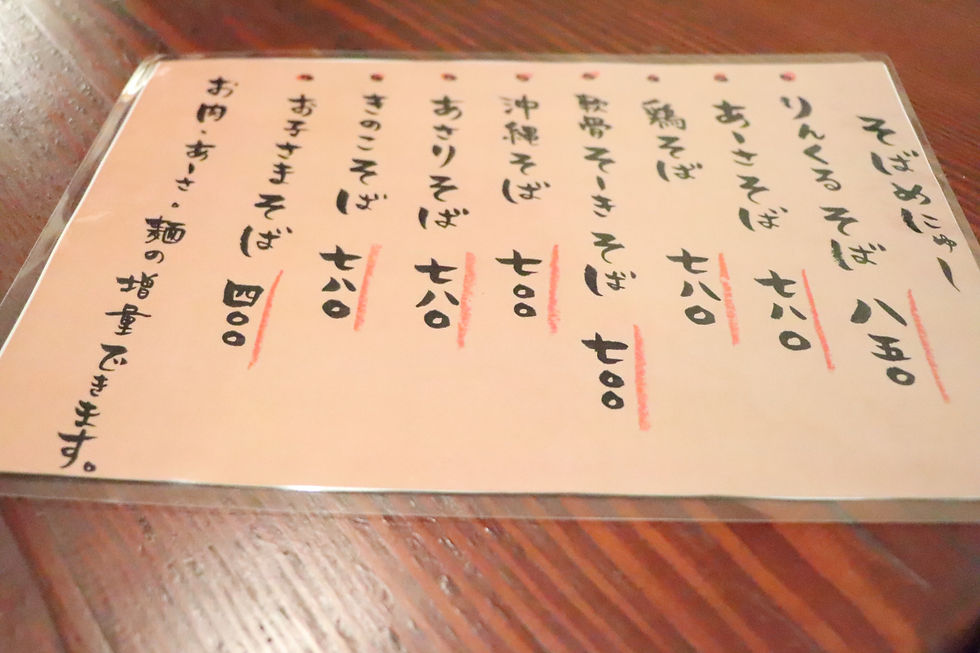 そばめにゅー
りんくるそば 八五〇
あーさそば 七八〇
鶏そば 七八〇
軟骨そーきそば 七〇〇
沖縄そば 七〇〇
あさりそば 七八〇
きのこそば 七八〇
お子さまそば 四〇〇
お肉・あーさ・麺の増量できます。